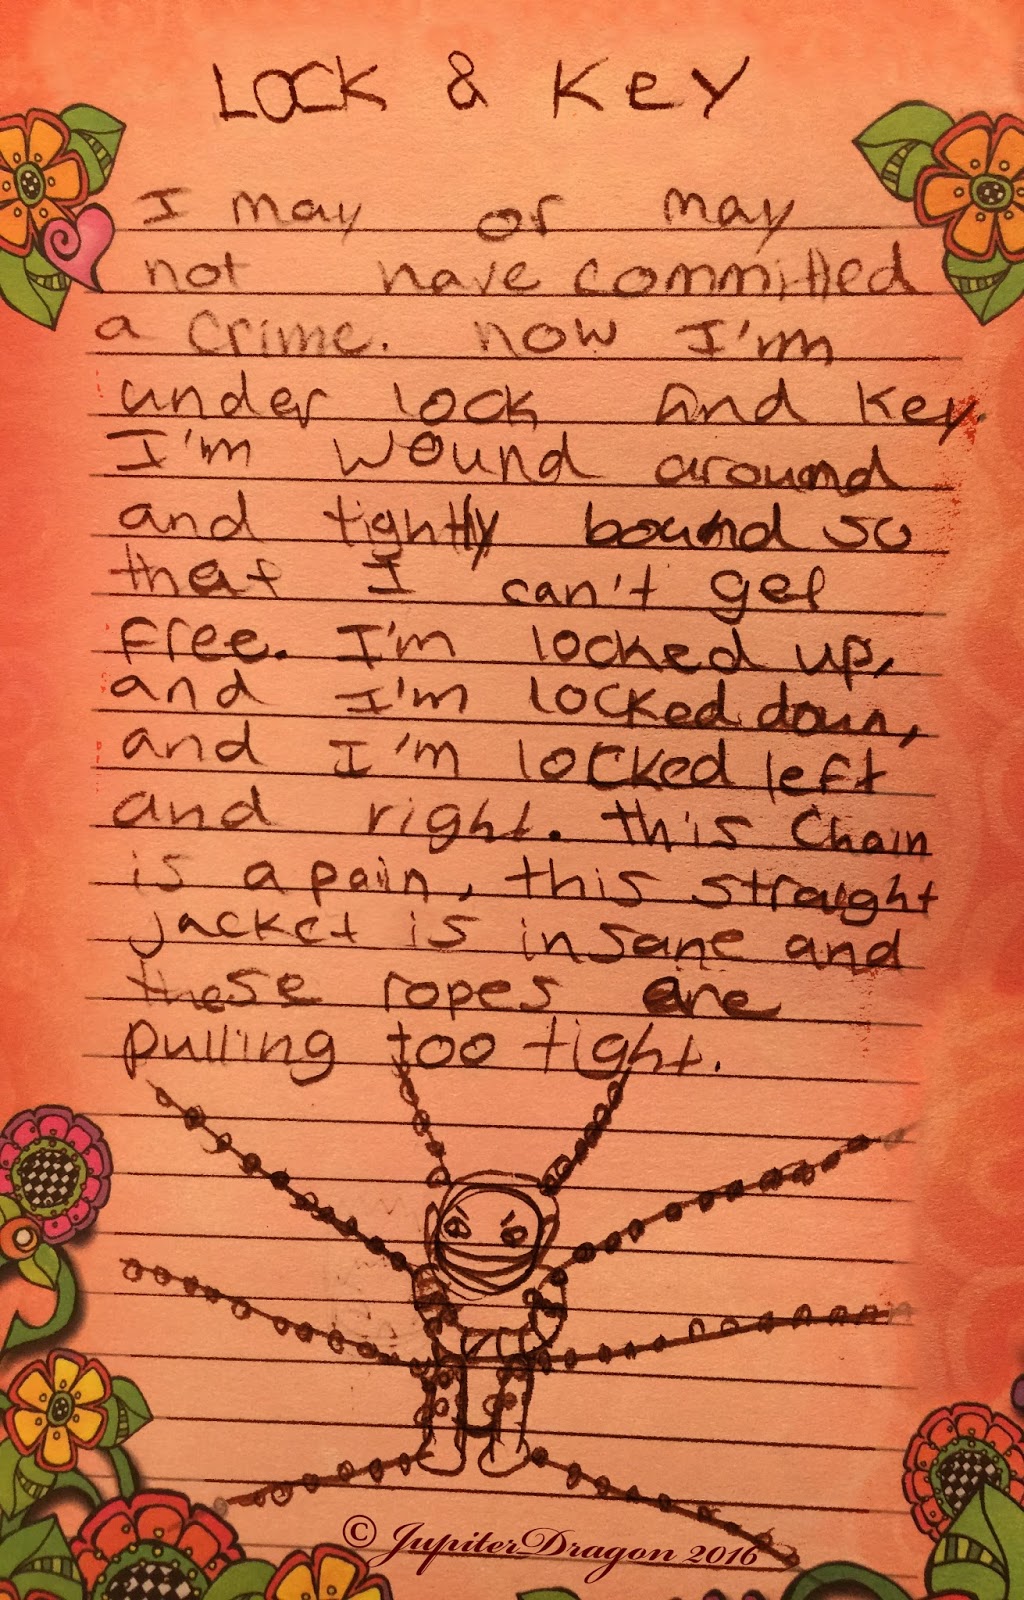 LOCK & KEY
I may or may
not have committed
a crime. now I'm
under lock And key.
I'm wound around
and tightly bound so
that I can't get
free. I'm locked up,
and I'm locked down,
and I'm locked left
and right. this chain
is a pain, this straight
jacket is insane and
these ropes are
pulling too tight.
© JupiterDragon 2016